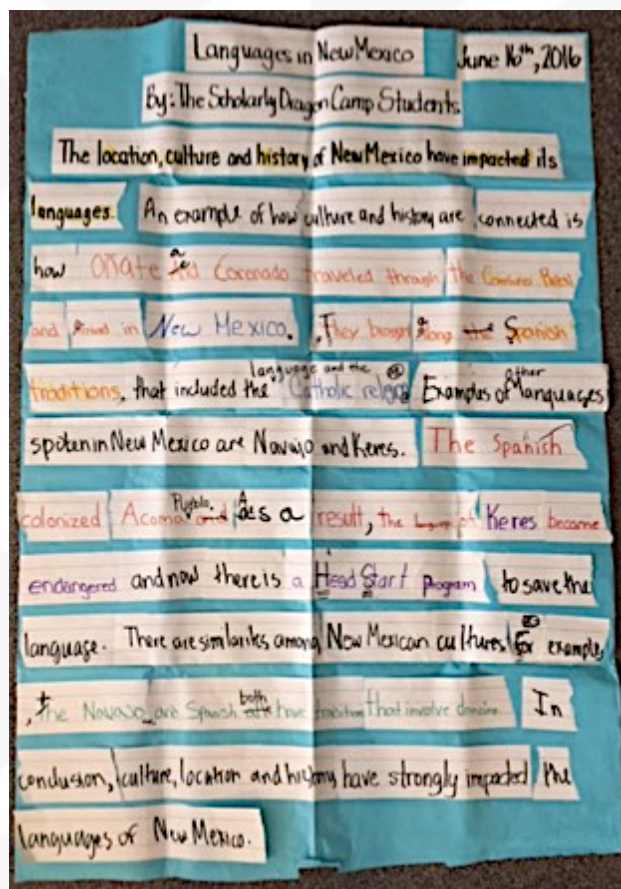 Languages in New Mexico June 16th, 2016
By: The Scholarly Dragon Camp Students
The location, culture and history of New Mexico have impacted its
languages. An example of how culture and history are connected is
how Oñate and Coronado traveled through the Camino Real
and arrived in New Mexico. They brought along the Spanish
traditions, that included the language and the Catholic religion Examples of other languages
spoken in New Mexico are Navajo and Keres. The Spanish
colonized Acoma Pueblo and As a result, the language of Keres became
endangered and now there is a Head Start program to save the
language. There are similarities among New Mexican cultures. For example,
, the Navajo and Spanish both have tradition that involve dancing. In
conclusion, culture, location and history have strongly impacted the
languages of New Mexico.